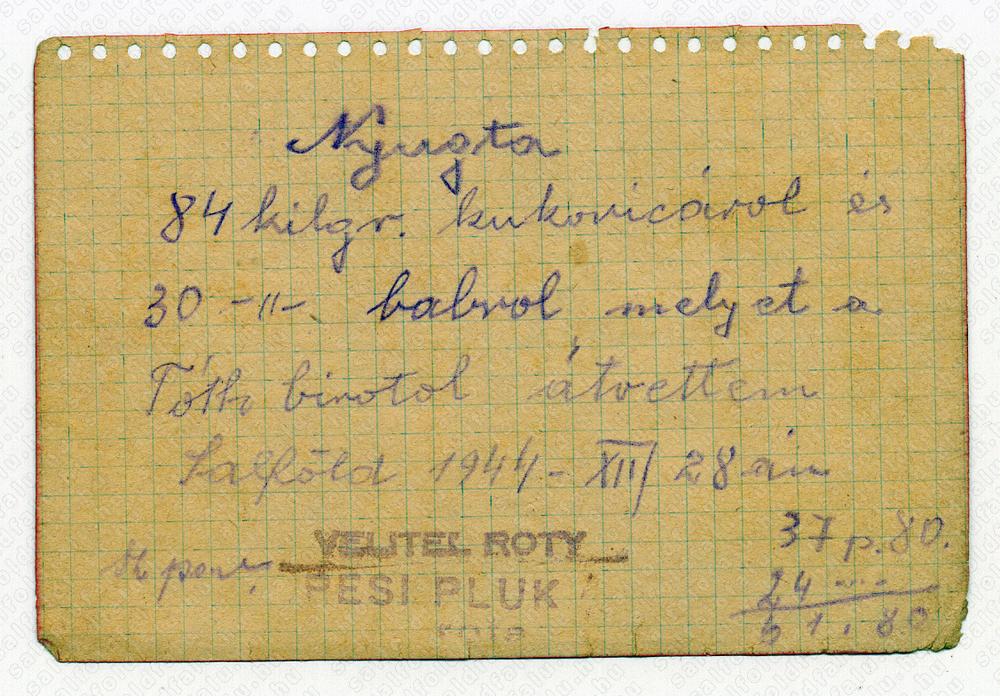 Nyugta
84 kilgr. kukoricárol és
30 -〃- babrol melyet a
Tóth birotol átvettem
Salföld 1944 - XII/ 28 án
37 p. 80.
VELITEL ROTY
24 ----
PESI PLUK
61. 80